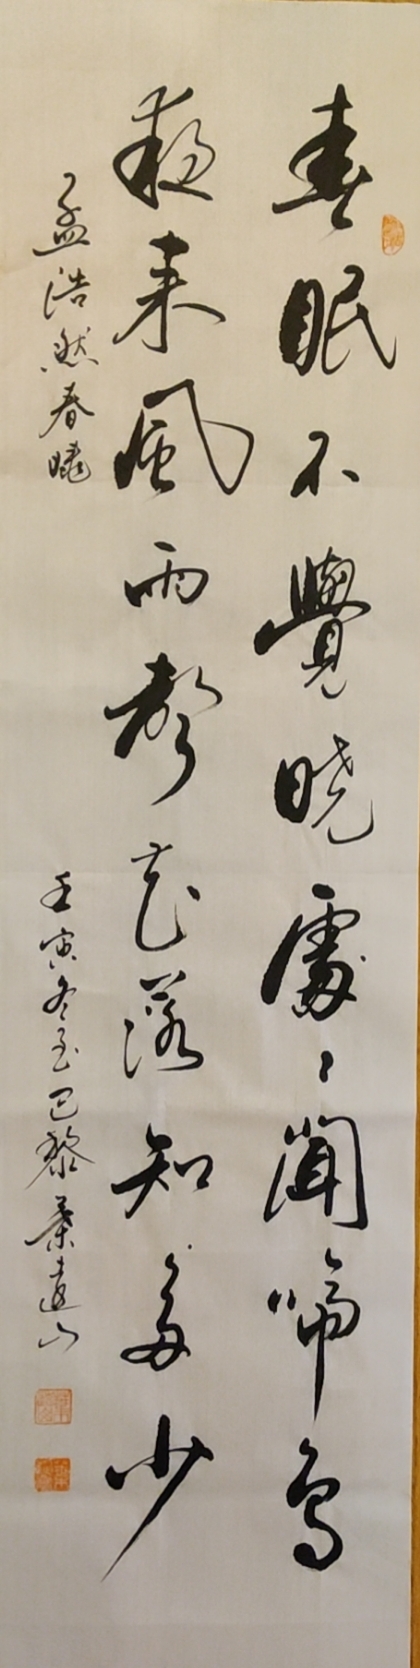 春眠不覺曉處〻聞啼鳥
夜来風雨聲花落知多少
孟浩然春曉
壬寅冬至巴黎葉遠